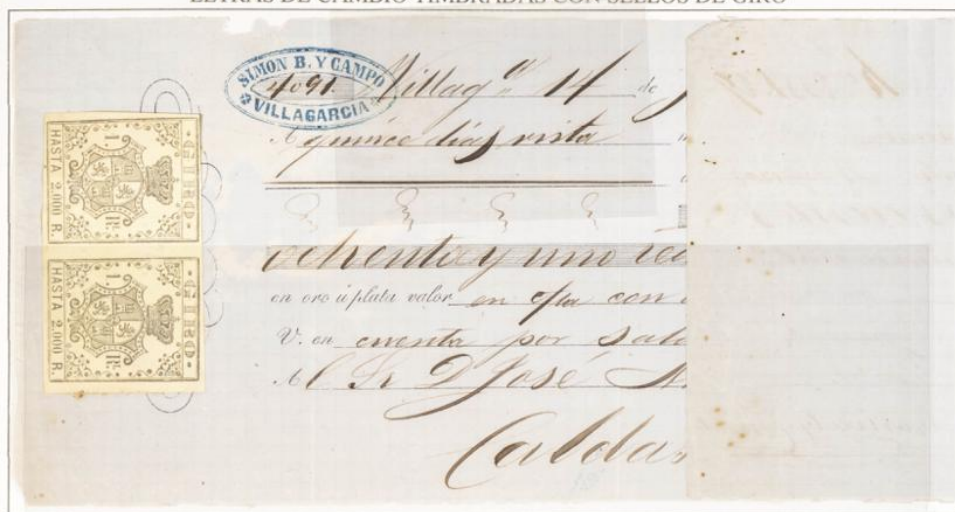 LETRAS DE CAMBIO TIMBRADAS CON SELLOS DE GIRO
SIMON B. Y CAMPO
4091.
VILLAGARCIA
Villag.ª 14 de
A quince días vista
ochenta y uno
en oro ó plata valor en c/ta con
V. en cuenta por
Al Sr D José
Caldas
GIRO
1. Rl.
HASTA 2.000 R.
GIRO
1. Rl.
HASTA 2.000 R.